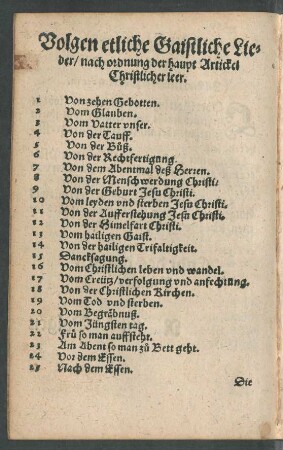 Volgen etliche Gaistliche Lie-
der / nach ordnung der haupt Artickel
Christlicher leer.
1 Von zehen Gebotten.
2 Vom Glauben.
3 Vom Vatter vnser.
4 Von der Tauff.
5 Von der Bůß.
6 Von der Rechtfertigung.
7 Von dem Abentmal deß Herren.
8 Von der Menschwerdung Christi.
9 Von der Geburt Jesu Christi.
10 Vom leyden vnd sterben Jesu Christi.
11 Von der Aufferstehung Jesu Christi.
12 Von der Himelfart Christi.
13 Vom hailigen Gaist.
14 Von der hailigen Trifaltigkeit.
15 Dancksagung.
16 Vom Christlichen leben vnd wandel.
17 Vom Creütz / verfolgung vnd anfechtung.
18 Von der Christlichen Kirchen.
19 Vom Tod vnd sterben.
20 Vom Begräbnuß.
21 Vom Jüngsten tag.
22 Frů so man auffsteht.
23 Am Abent so man zů Bett geht.
24 Vor dem Essen.
25 Nach dem Essen.
Die